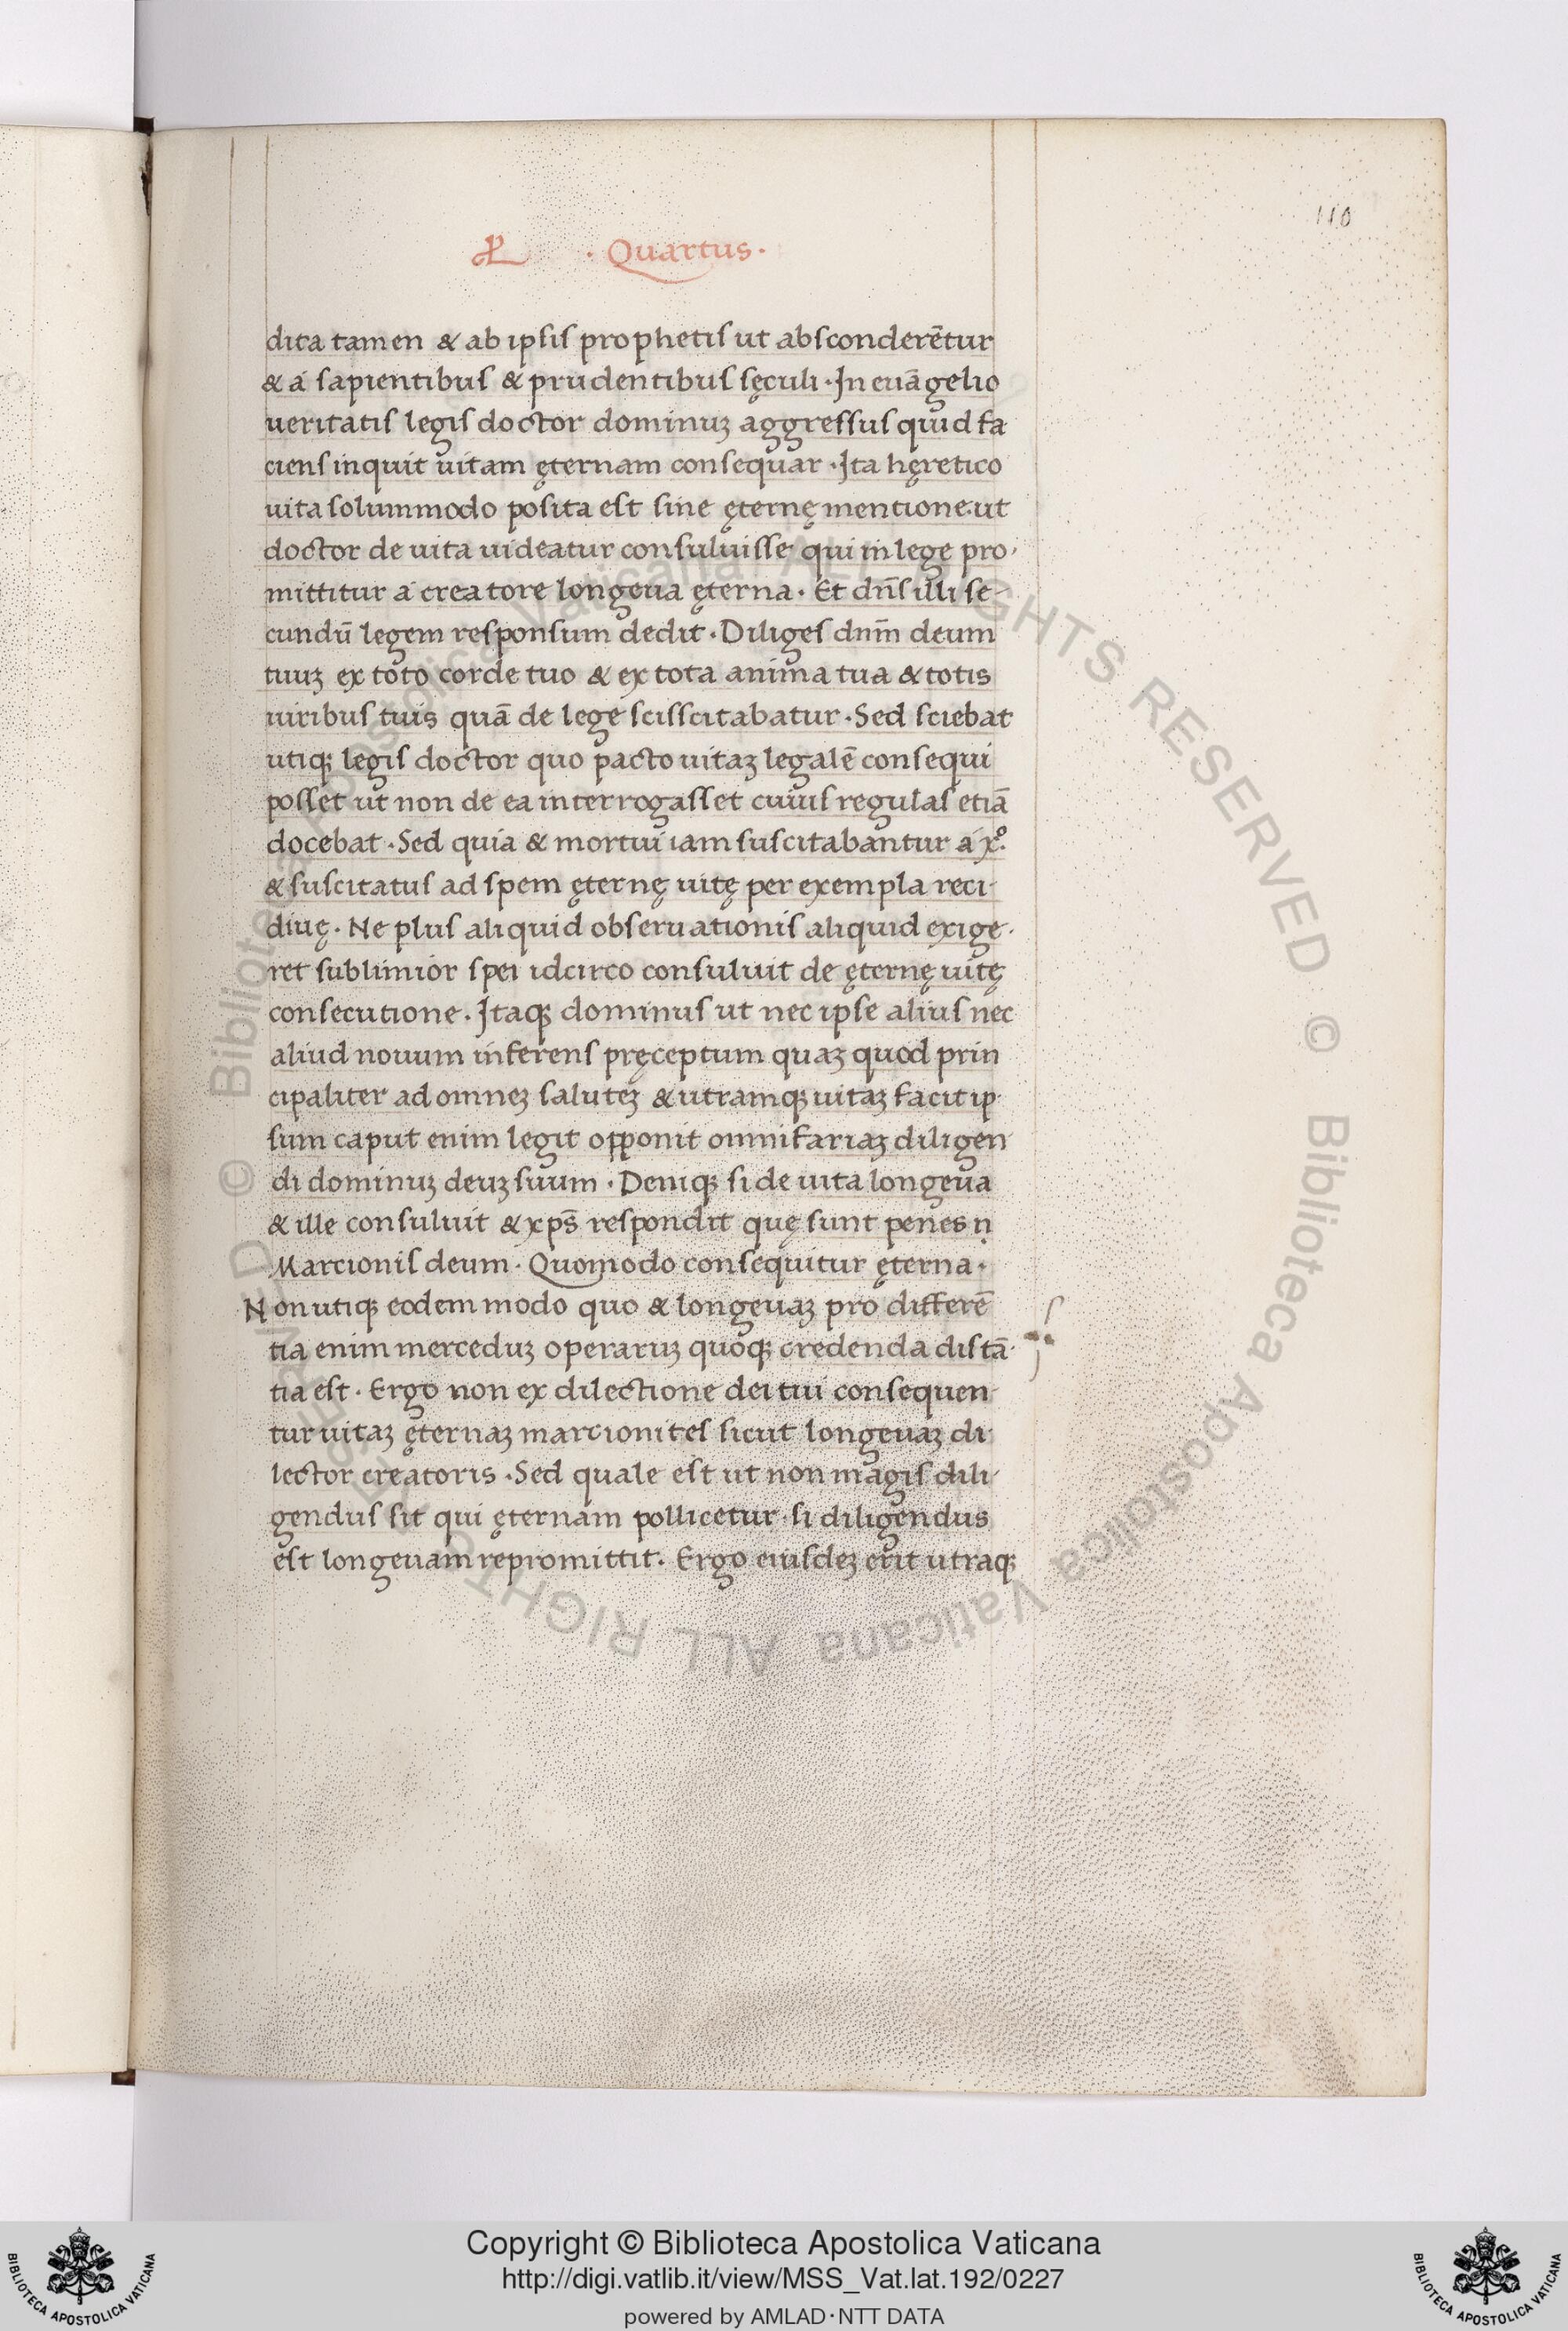 110
· Quartus ·
dita tamen & ab ipsis prophetis ut absconderẽtur
& á sapientibus & prudentibus sęculi · In euãgelio
ueritatis legis doctor dominuꝫ aggressus quid fa
ciens inquit uitam ęternam consequar · Ita hęretico
uita solummodo posita est sine ęternę mentione ut
doctor de uita uideatur consuluisse qui in lege pro-
mittitur a creatore longeua ęterna · Et dñs illi se-
cundũ legem responsum dedit · Diliges dnm̃ deum
tuuꝫ ex toto corde tuo & ex tota anima tua & totis
uiribus tuis quã de lege scisscitabatur · Sed sciebat
utiqꝫ legis doctor quo pacto uitaꝫ legalẽ consequi
posset ut non de ea interrogasset cuius regulas etiã
docebat · Sed quia & mortui iam suscitabantur á xº.
& suscitatus ad spem ęternę uitę per exempla reci-
diuę · Ne plus aliquid obseruationis aliquid exige-
ret sublimior spei idcirco consuluit de ęternę uitę
consecutione · Itaqꝫ dominus ut nec ipse alius nec
aliud nouum inferens pręceptum quaꝫ quod prin
cipaliter ad omneꝫ saluteꝫ & utramqꝫ uitaꝫ facit ip-
sum caput enim legit opponit omnifariaꝫ diligen-
di dominuꝫ deuꝫ suum · Deniqꝫ si de uita longeua
& ille consuluit & xps̃ respondit quę sunt penes ṇ
Marcionis deum · Quomodo consequitur ęterna ·
Non utiqꝫ eodem modo quo & longeuaꝫ pro differẽ
tia enim merceduꝫ operaruꝫ quoqꝫ credenda distã-
tia est · Ergo non ex dilectione dei tui consequen-
tur uitaꝫ ęternaꝫ marcionites sicut longeuaꝫ di-
lector creatoris · Sed quale est ut non magis dili-
gendus sit qui ęternam pollicetur · si diligendus
est longeuam repromittit · Ergo eiusdeꝫ erit utraqꝫ
Copyright © Biblioteca Apostolica Vaticana
http://digi.vatlib.it/view/MSS_Vat.lat.192/0227
powered by AMLAD·NTT DATA
BIBLIOTECA APOSTOLICA VATICANA
BIBLIOTECA APOSTOLICA VATICANA
© Biblioteca Apostolica Vaticana ALL RIGHTS RESERVED © Biblioteca Apostolica Vaticana ALL RIGHTS RESERVED